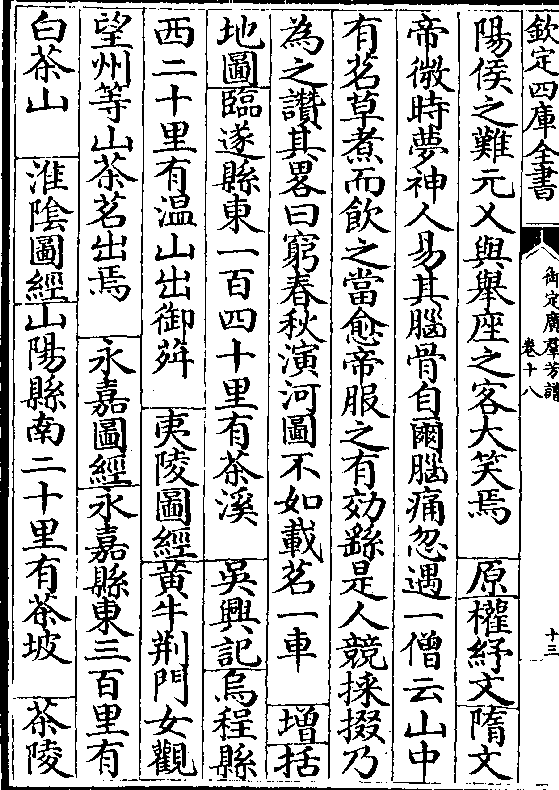 欽定四庫全書
御定廣羣芳譜
卷十八
十三
陽侯之難元乂與舉座之客大笑焉　原權紓文隋文
帝微時夢神人易其腦骨自爾腦痛忽遇一僧云山中
有茗草煮而飲之當愈帝服之有効繇是人競採掇乃
為之讚其畧曰窮春秋演河圖不如載茗一車　增括
地圖臨遂縣東一百四十里有茶溪　吳興記烏程縣
西二十里有温山出御荈　夷陵圖經黄牛荆門女觀
望州等山茶茗出焉　永嘉圖經永嘉縣東三百里有
白茶山　淮陰圖經山陽縣南二十里有茶坡　茶陵